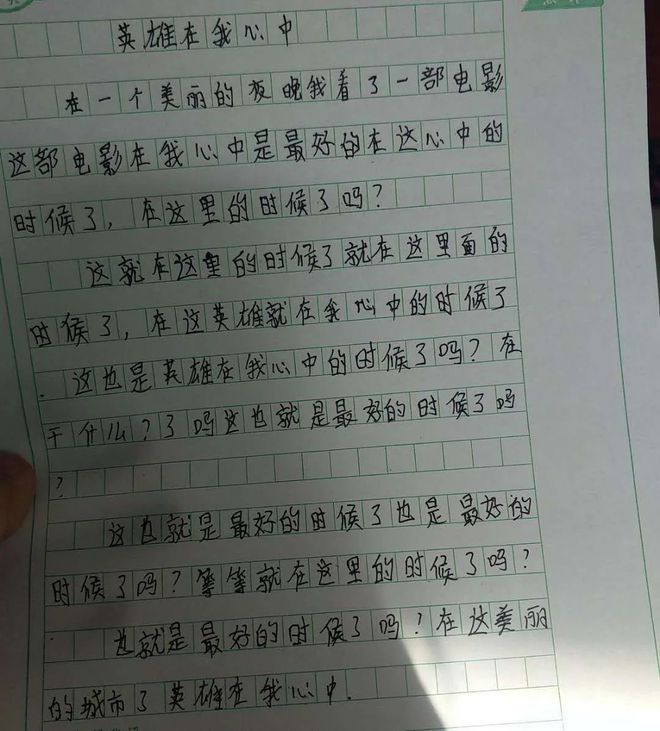 英雄在我心中
在一个美丽的夜晚我看了一部电影
这部电影在我心中是最好的在这心中的
时候了，在这里的时候了吗？
这就在这里的时候了就在这里面的
时候了，在这英雄就在我心中的时候了
．这也是英雄在我心中的时候了吗？在
干什么？了吗这也就是最好的时候了吗
？
这也就是最好的时候了也是最好的
时候了吗？等等就在这里的时候了吗？
也就是最好的时候了吗？在这美丽
的城市了英雄在我心中．